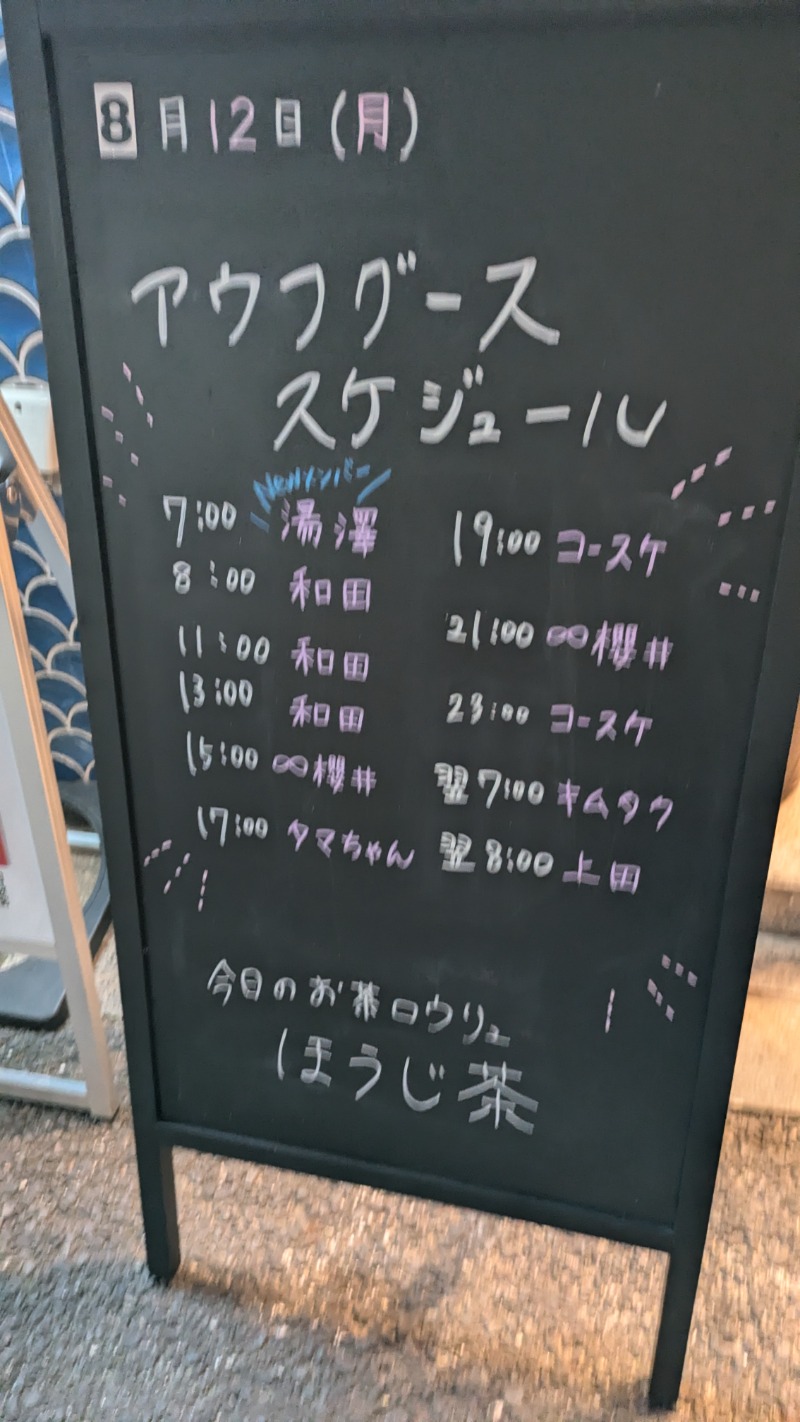 8月12日(月)
アウフグース
スケジュール
Newメンバー
7:00 湯澤
8:00 和田
11:00 和田
13:00 和田
15:00 ∞櫻井
17:00 タマちゃん
19:00 コースケ
21:00 ∞櫻井
23:00 コースケ
翌7:00 キムタク
翌8:00 上田
今日のお茶ロウリュ
ほうじ茶